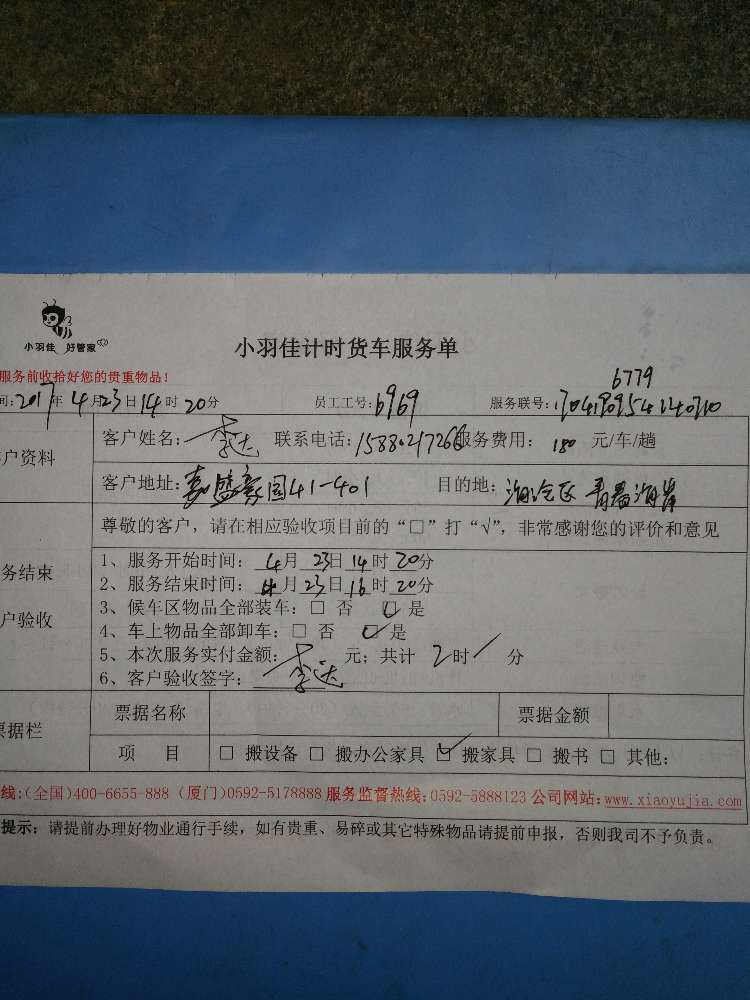 小羽佳 好管家
小羽佳计时货车服务单
服务前收拾好您的贵重物品！
6779
间:2017年4月23日14时20分 员工工号:6969 服务联号:
客户姓名:李达 联系电话: 服务费用: 180 元/车/趟
户资料
客户地址:嘉盛豪园41-401 目的地:湖沧区 青春海岸
尊敬的客户，请在相应验收项目前的“□”打“√”，非常感谢您的评价和意见
务结束
户验收
1、服务开始时间: 4月23日14时20分
2、服务结束时间: 4月23日16时20分
3、候车区物品全部装车:□ 否 ☑ 是
4、车上物品全部卸车:□ 否 ☑ 是
5、本次服务实付金额: 元; 共计 2时/ 分
6、客户验收签字: 李达
票据栏
票据名称 票据金额
项 目 □ 搬设备 □ 搬办公家具 ☑ 搬家具 □ 搬书 □ 其他:
线:(全国)400-6655-888 (厦门)0592-5178888 服务监督热线:0592-5888123 公司网站:www.xiaoyujia.com
提示: 请提前办理好物业通行手续，如有贵重、易碎或其它特殊物品请提前申报，否则我司不予负责。